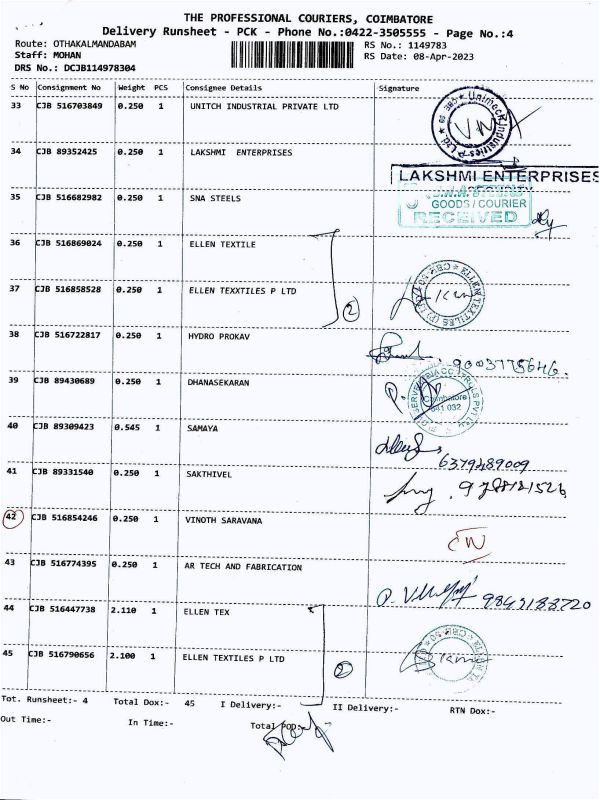 THE PROFESSIONAL COURIERS, COIMBATORE
Delivery Runsheet - PCK - Phone No.:0422-3505555 - Page No.:4
Route: OTHAKALMANDABAM RS No.: 1149783
Staff: MOHAN RS Date: 08-Apr-2023
DRS No.: DCJB114978304
S No Consignment No Weight PCS Consignee Details Signature
33 CJB 516703849 0.250 1 UNITCH INDUSTRIAL PRIVATE LTD
34 CJB 89352425 0.250 1 LAKSHMI ENTERPRISES
LAKSHMI ENTERPRISES
35 CJB 516682982 0.250 1 SNA STEELS
GOODS / COURIER
RECEIVED
36 CJB 516869024 0.250 1 ELLEN TEXTILE
37 CJB 516858528 0.250 1 ELLEN TEXXTILES P LTD
2
38 CJB 516722817 0.250 1 HYDRO PROKAV
9003775646.
39 CJB 89430689 0.250 1 DHANASEKARAN
Coimbatore
641 032
40 CJB 89309423 0.545 1 SAMAYA
6379489009
41 CJB 89331540 0.250 1 SAKTHIVEL
42 CJB 516854246 0.250 1 VINOTH SARAVANA
43 CJB 516774395 0.250 1 AR TECH AND FABRICATION
44 CJB 516447738 2.110 1 ELLEN TEX
45 CJB 516790656 2.100 1 ELLEN TEXTILES P LTD
2
Tot. Runsheet:- 4 Total Dox:- 45 I Delivery:- II Delivery:- RTN Dox:-
Out Time:- In Time:- Total POD:-